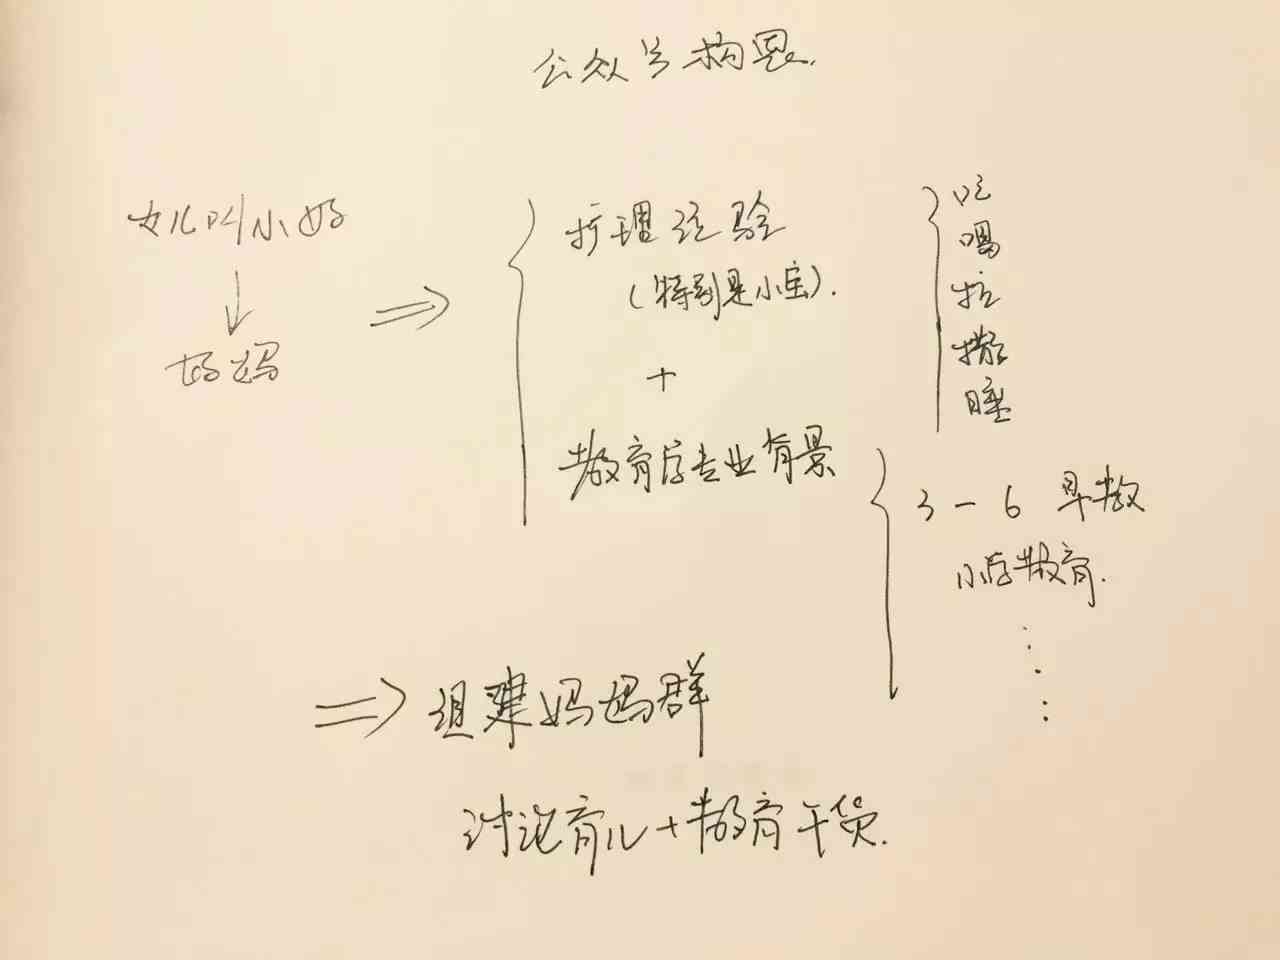 公众号构思.
女儿叫小好
好妈
护理经验
(特别是小宝).
+
教育学专业背景
吃
喝
拉
撒
睡
3-6 早教
小学教育.
组建妈妈群
讨论育儿+教育干货.